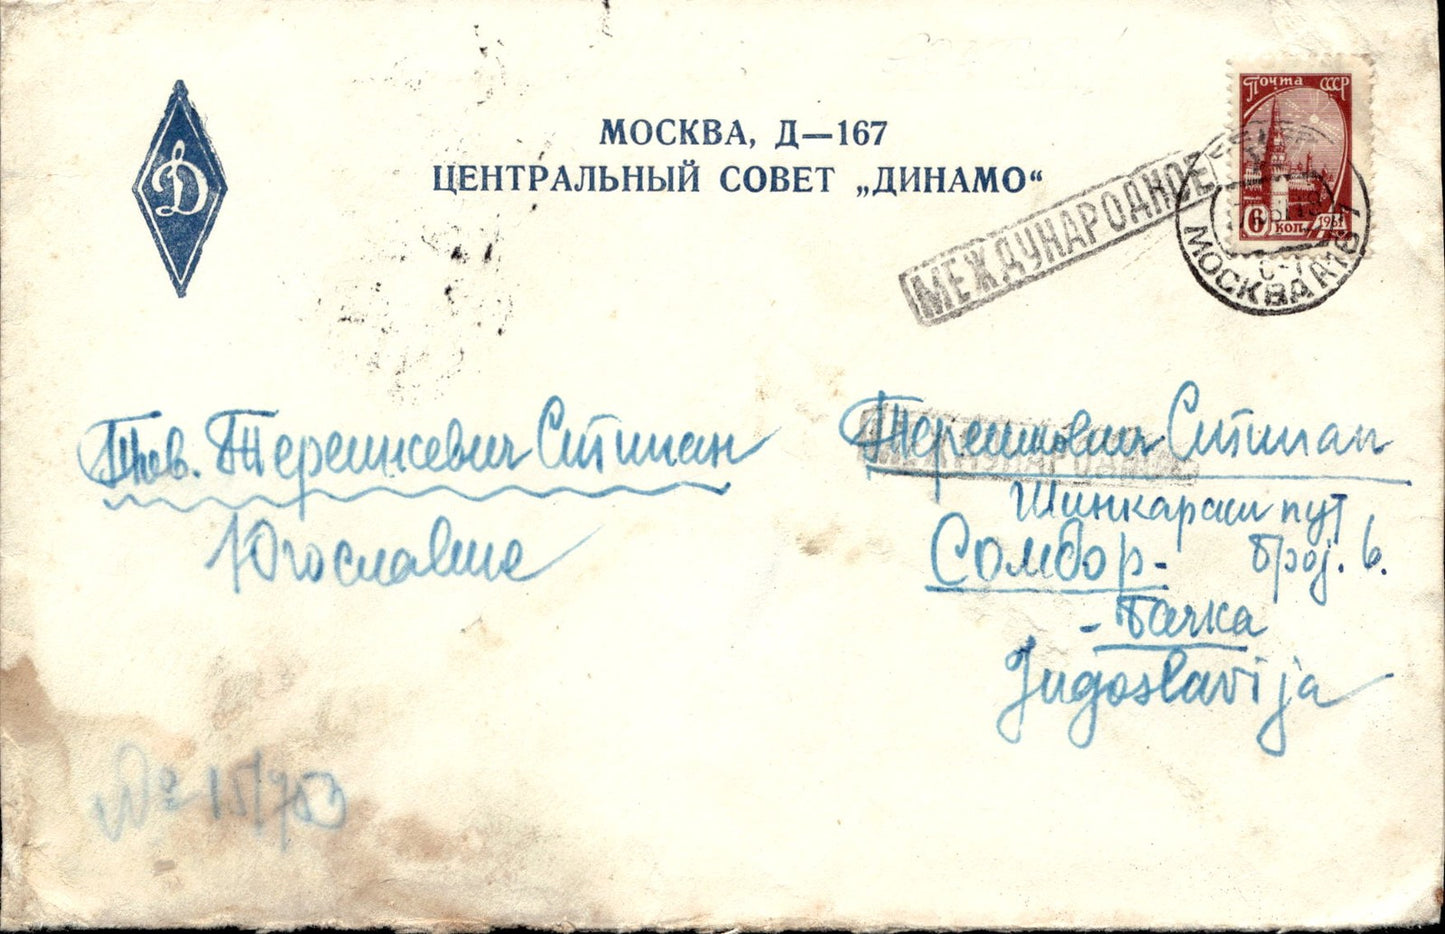 Д
МОСКВА, Д—167
ЦЕНТРАЛЬНЫЙ СОВЕТ „ДИНАМО“
Почта СССР
6 коп. 1961
МЕЖДУНАРОДНОЕ
МОСКВА
Тов. Стипан
Югославия
Стипан
Шинкараш пут
Сомбор- број. 6.
- Бачка
Jugoslavija
№ 15/753